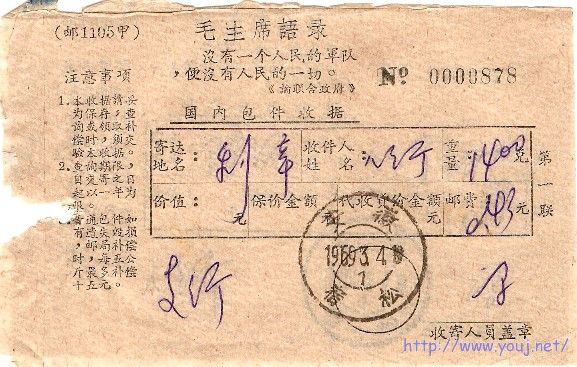 (邮1105甲)
毛主席語录
沒有一个人民的軍队
，便沒有人民的一切。
《論联合政府》
№ 0000878
国内包件收据
注意事項
1.本收据請妥
为保存，查
詢或領取补
偿时，須交
驗本收据。
2.查詢期限，
自交寄之日
起以一年为
限。
普通包件如
有遗失毁損
，邮局补偿
时，每五公
斤最多补偿
十五元。
寄达
地名：
收件人
姓 名：
重
量：1400克
价值： 元
保价金額 元
代收貨价金額 元
邮費
第一联
安徽
1969.3.4.18
1
宿松
支行
收寄人員盖章
http://www.youj.net/